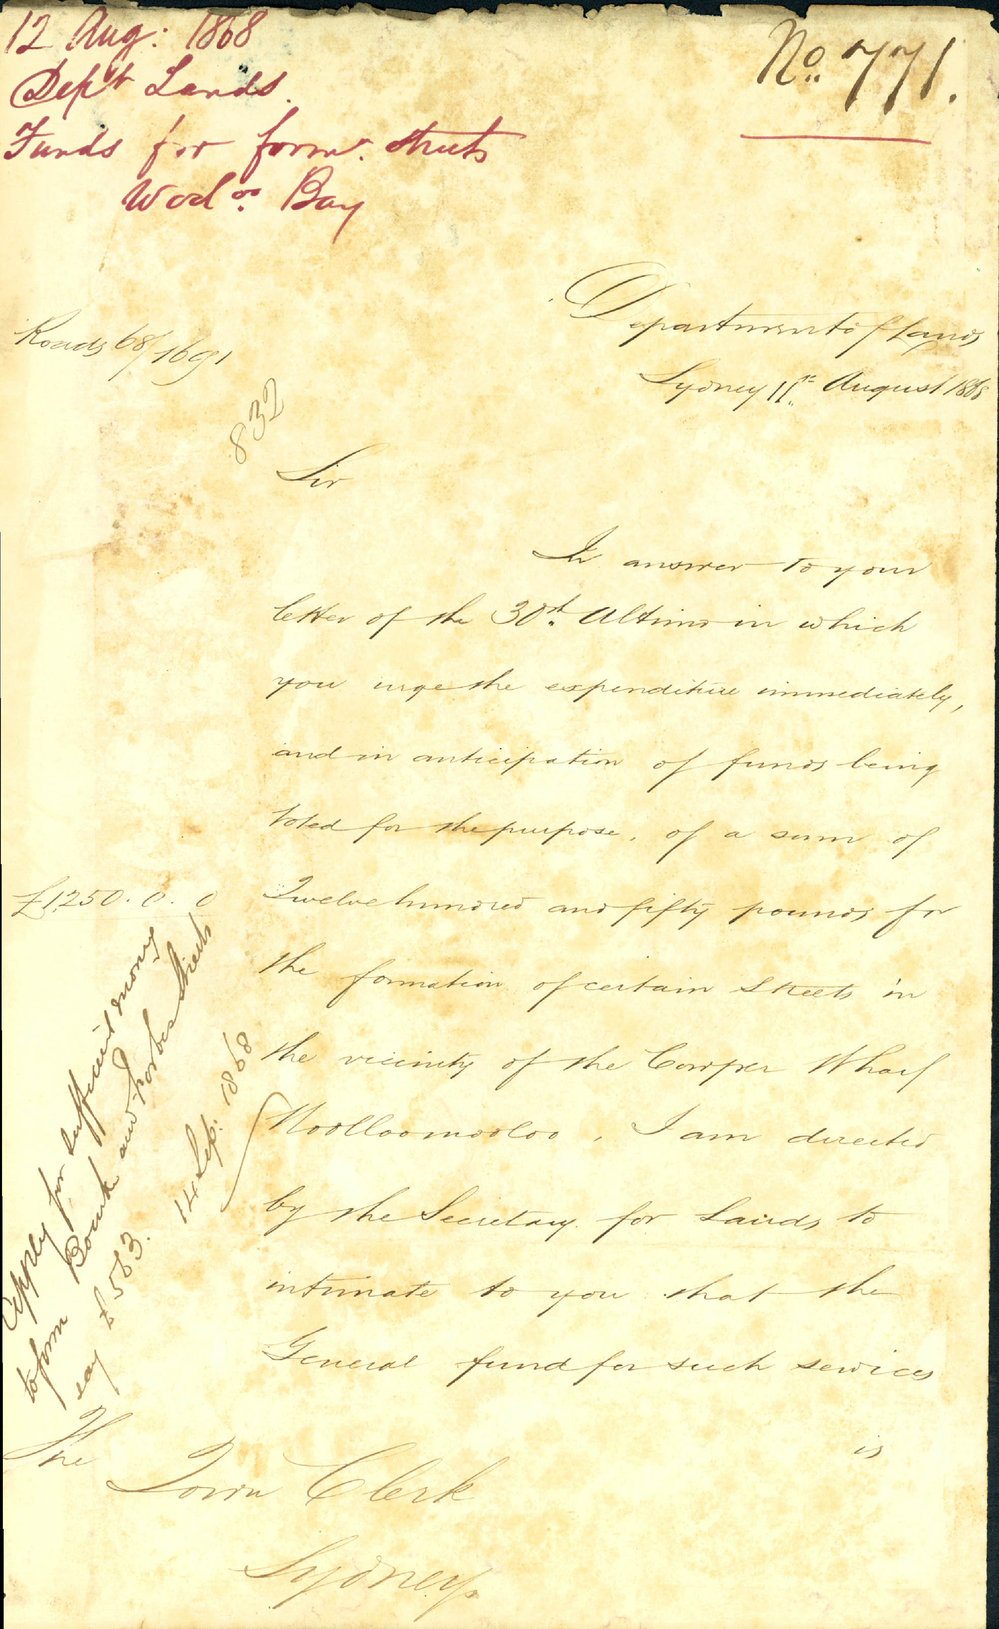 12 Aug: 1868
Dept Lands.
Funds for formn. streets
Wool oo. Bay
No. 771.
Department of Lands
Sydney 11th August 1868
Roads 68/1691
832
Sir
In answer to your
letter of the 30th Ultimo in which
you urge the expenditure immediately,
and in anticipation of funds being
voted for the purpose, of a sum of
£1,250. 0. 0
Twelve hundred and fifty pounds for
the formation of certain Streets in
the vicinity of the Cowper Wharf
Woolloomooloo, I am directed
by the Secretary for Lands to
intimate to you that the
General fund for such services
is
Apply for sufficient money
to form Bourke and Forbes Streets
say £583.
14 Sep: 1868
The
Town Clerk
Sydney